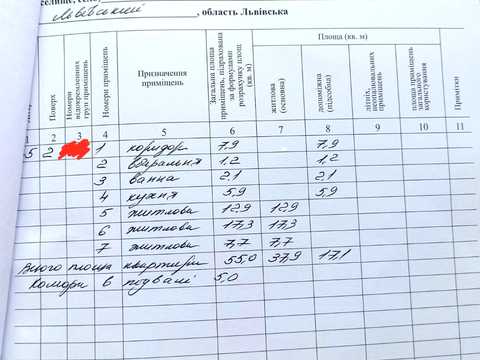 Львівський, область Львівська
Поверх
Номери відокремлених груп приміщень
Номери приміщень
Призначення приміщень
Загальна площа приміщень, підрахована за формулами розрахунку площ (кв. м)
Площа (кв. м)
житлова (основна)
допоміжна (підсобна)
літніх, неопалювальних приміщень
площа приміщень загального користування
Примітки
1 2 3 4 5 6 7 8 9 10 11
5 2 1 коридор 7,9 7,9
2 вбиральня 1,2 1,2
3 ванна 2,1 2,1
4 кухня 5,9 5,9
5 житлова 12,9 12,9
6 житлова 17,3 17,3
7 житлова 7,7 7,7
Всього площа квартири 55,0 37,9 17,1
Комори в подвалі 5,0